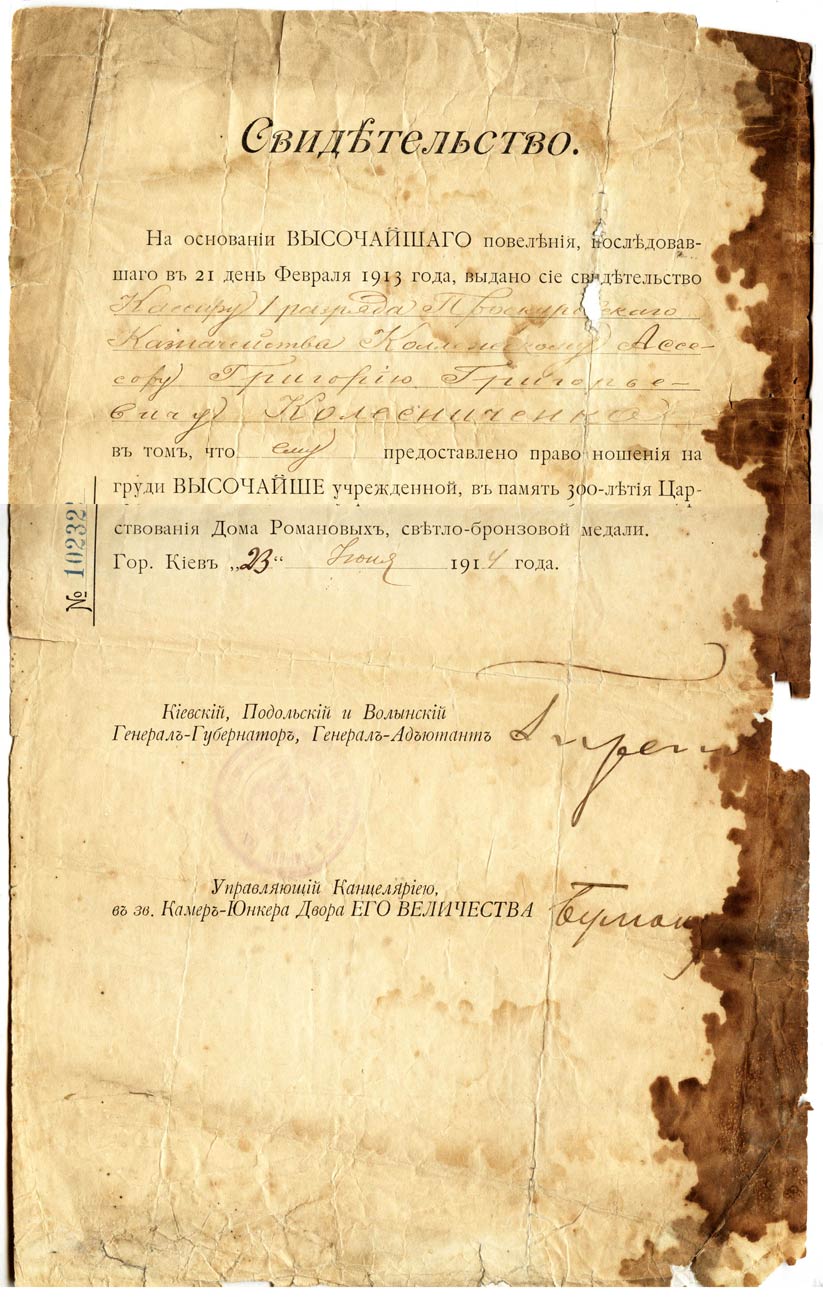 Свидѣтельство.
На основаніи ВЫСОЧАЙШАГО повелѣнія, послѣдовав-
шаго въ 21 день Февраля 1913 года, выдано сіе свидѣтельство
Кассиру 1 разряда Проскуровскаго
Казначейства Коллежскому Ассе-
сору Григорію Григорье-
вичу Колесниченко
въ томъ, что ему предоставлено право ношенія на
груди ВЫСОЧАЙШЕ учрежденной, въ память 300-лѣтія Цар-
ствованія Дома Романовыхъ, свѣтло-бронзовой медали.
Гор. Кіевъ „23“ Іюня 1914 года.
№ 10232
Кіевскій, Подольскій и Волынскій
Генералъ-Губернаторъ, Генералъ-Адъютантъ
Управляющій Канцеляріею,
въ зв. Камеръ-Юнкера Двора ЕГО ВЕЛИЧЕСТВА